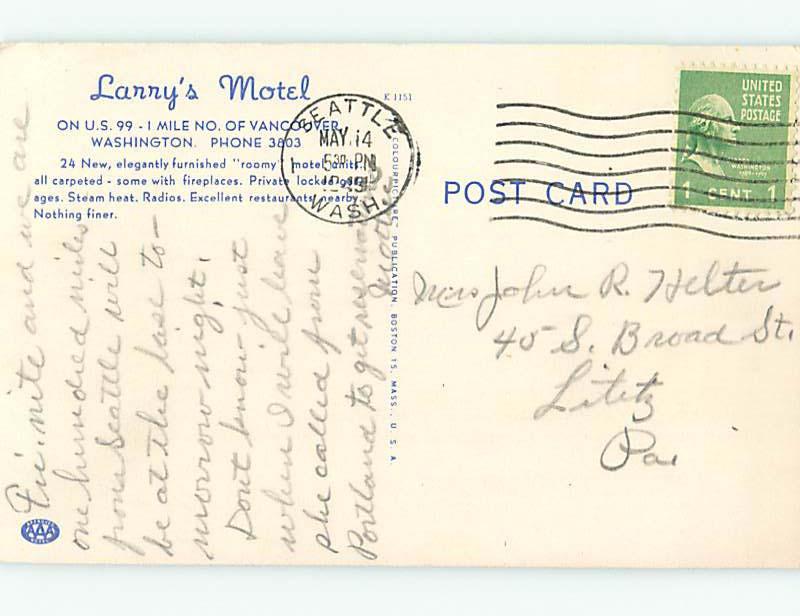 Larry's Motel
K 1151
ON U.S. 99 - 1 MILE NO. OF VANCOUVER,
WASHINGTON. PHONE 3803
24 New, elegantly furnished "roomy" motel units,
all carpeted - some with fireplaces. Private locked gar-
ages. Steam heat. Radios. Excellent restaurants nearby.
Nothing finer.
Fri. nite and we are
one hundred miles
from Seattle will
be at the base to-
morrow night.
Dont know just
when I will leave
she called from
Portland to get reservation
Mother
APPROVED
AAA
"COLOURPICTURE" PUBLICATION, BOSTON 15, MASS., U. S. A.
SEATTLE
MAY 14
530 PM
WASH.
POST CARD
UNITED
STATES
POSTAGE
WASHINGTON
1 CENT 1
Mrs John R. Helter
45 S. Broad St.
Lititz
Pa.